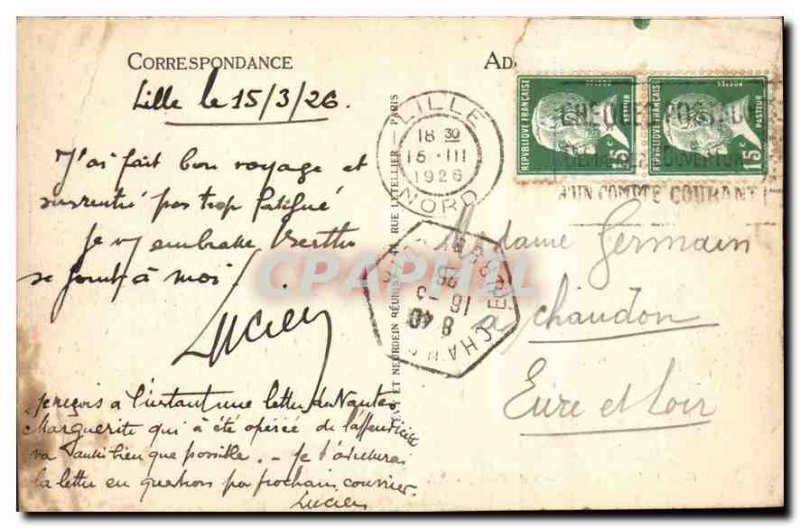 CORRESPONDANCE
Lille le 15/3/26.
J'ai fait bon voyage et
suis rentré pas trop fatigué
Je vs embrasse Berthe
se joint à moi.
Lucien
je reçois a l'instant une lettre de Nantes
Marguerite qui a été opérée de l'appendicite
va aussi bien que possible. - Je t'
la lettre en question par prochain courrier.
Lucien
Ad
LILLE
18 30
15 - III
1926
NORD
REPUBLIQUE FRANÇAISE
PASTEUR
15c
REPUBLIQUE FRANÇAISE
PASTEUR
15c
CHEQUES POSTAUX
DEMANDEZ L'OUVERTURE
D'UN COMPTE COURANT!
RUE LETELLIER, PARIS
ET NEURDEIN RÉUNIS
8 40
16 - 3
26
Madame Germain
a chaudon
Eure et Loir
CPAPHIL